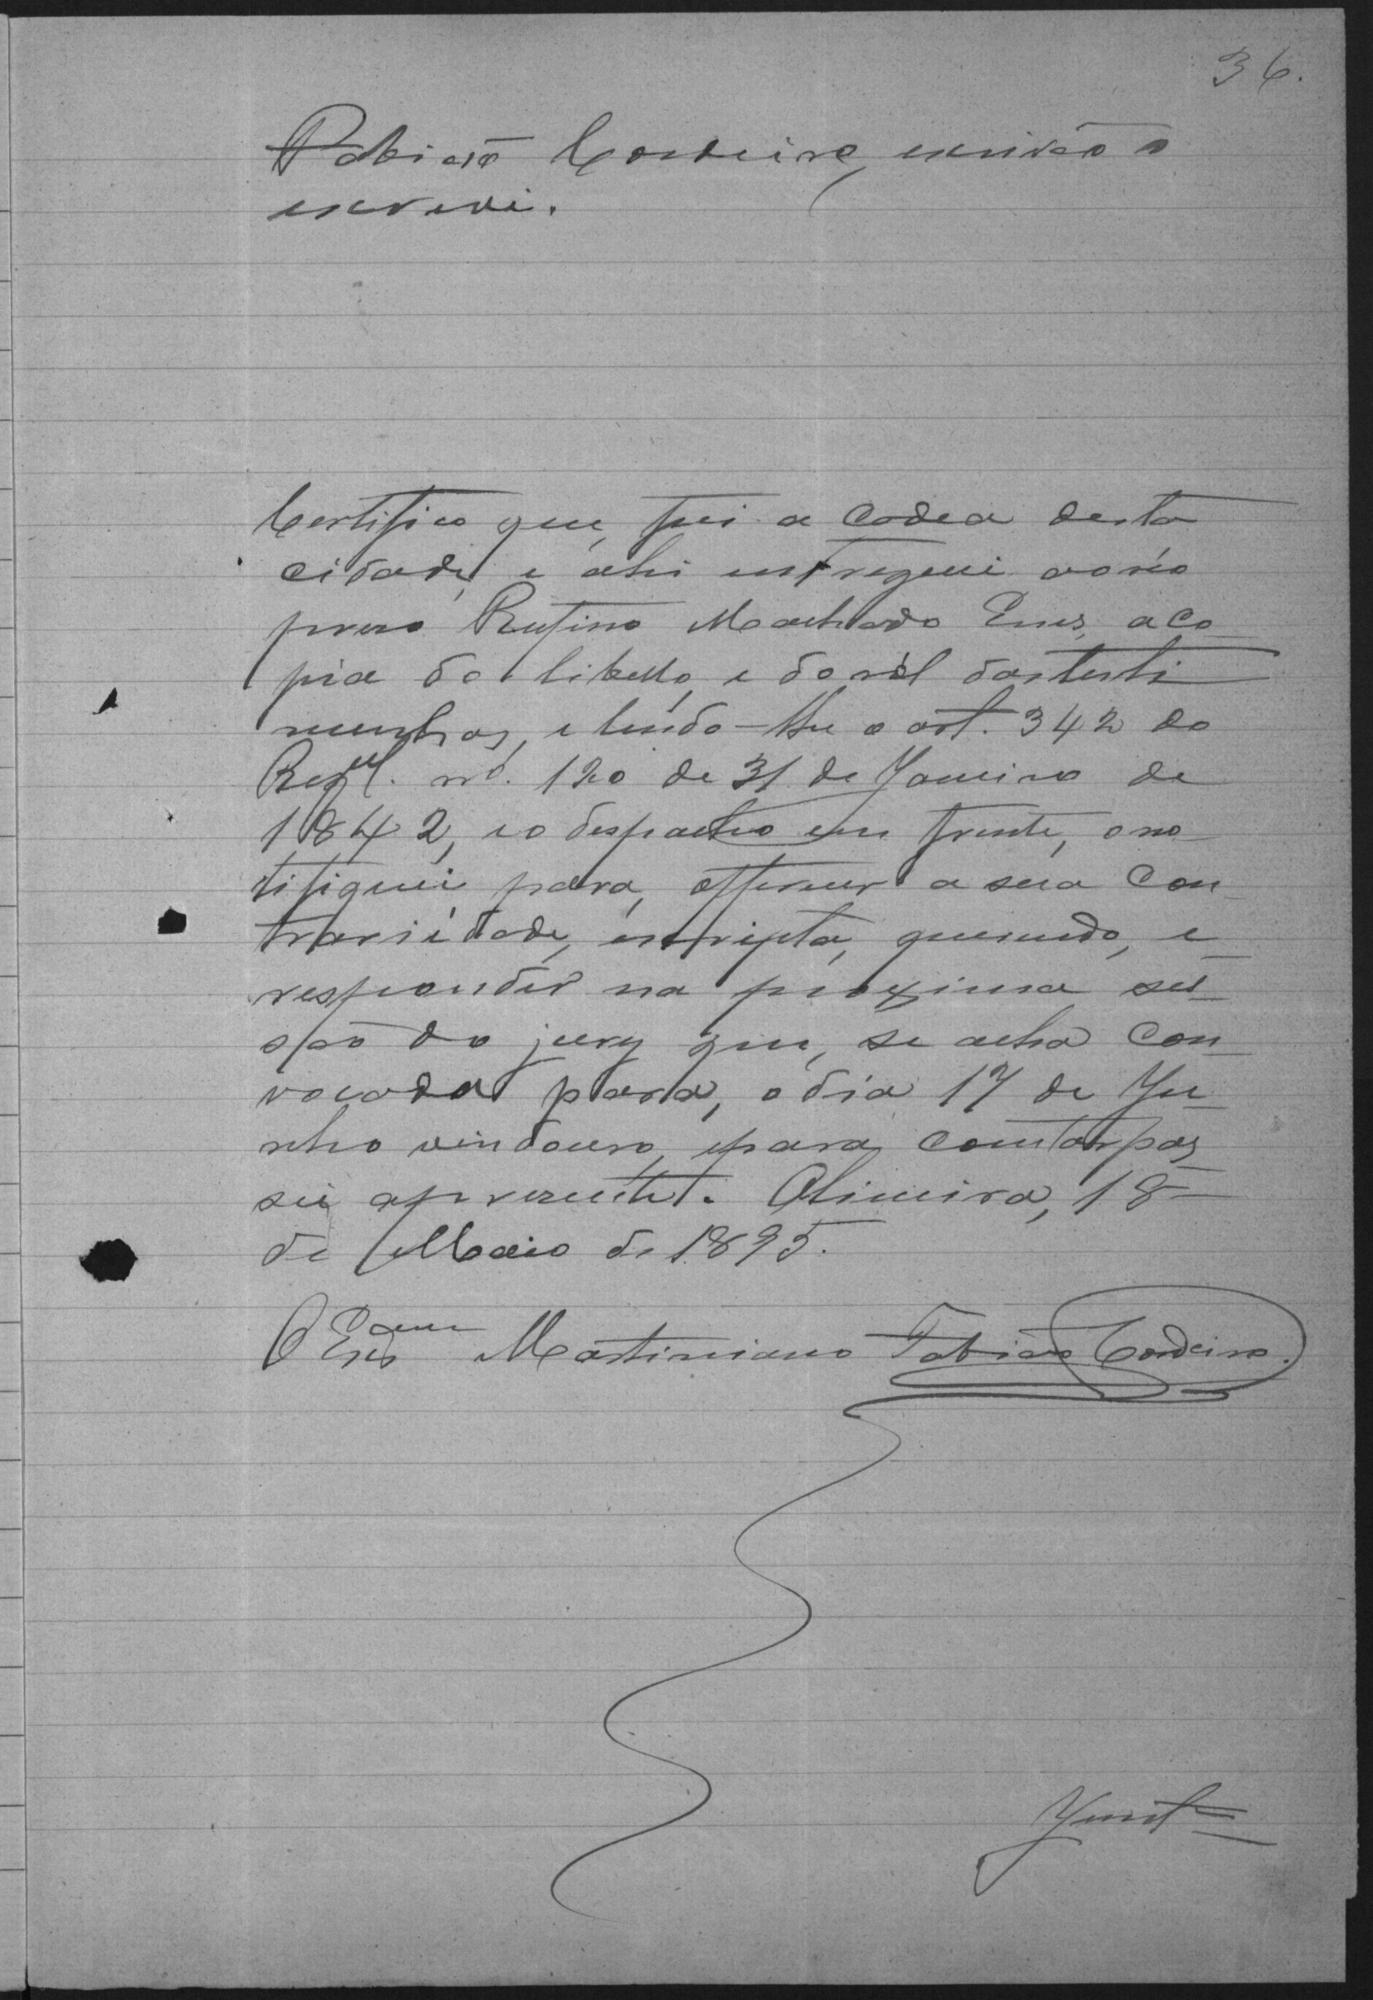 36.
Fabiaõ Cordeiro, escrivão o
escrevi.
Certifico que, fui a cadea desta
cidade, e ahi entreguei ao réo
preso Rufino Machado Enes, a co
pia do libello, e do ról das teste
munhas, e lendo-lhe o art. 342 do
Regul. nº. 120 de 31 de Janeiro de
1842, e o despacho em frente, o no
tifiquei para, offerecer a sua con
trariedade, escripta, querendo, e
responder na proxima ses
são do jury que, se acha con
vocada para, o dia 17 de Ju
nho vindouro, e para constar pas
sei a presente. Limeira, 18
de Maio de 1895.
O Esc Martiniano Fabião Cordeiro.
Junt